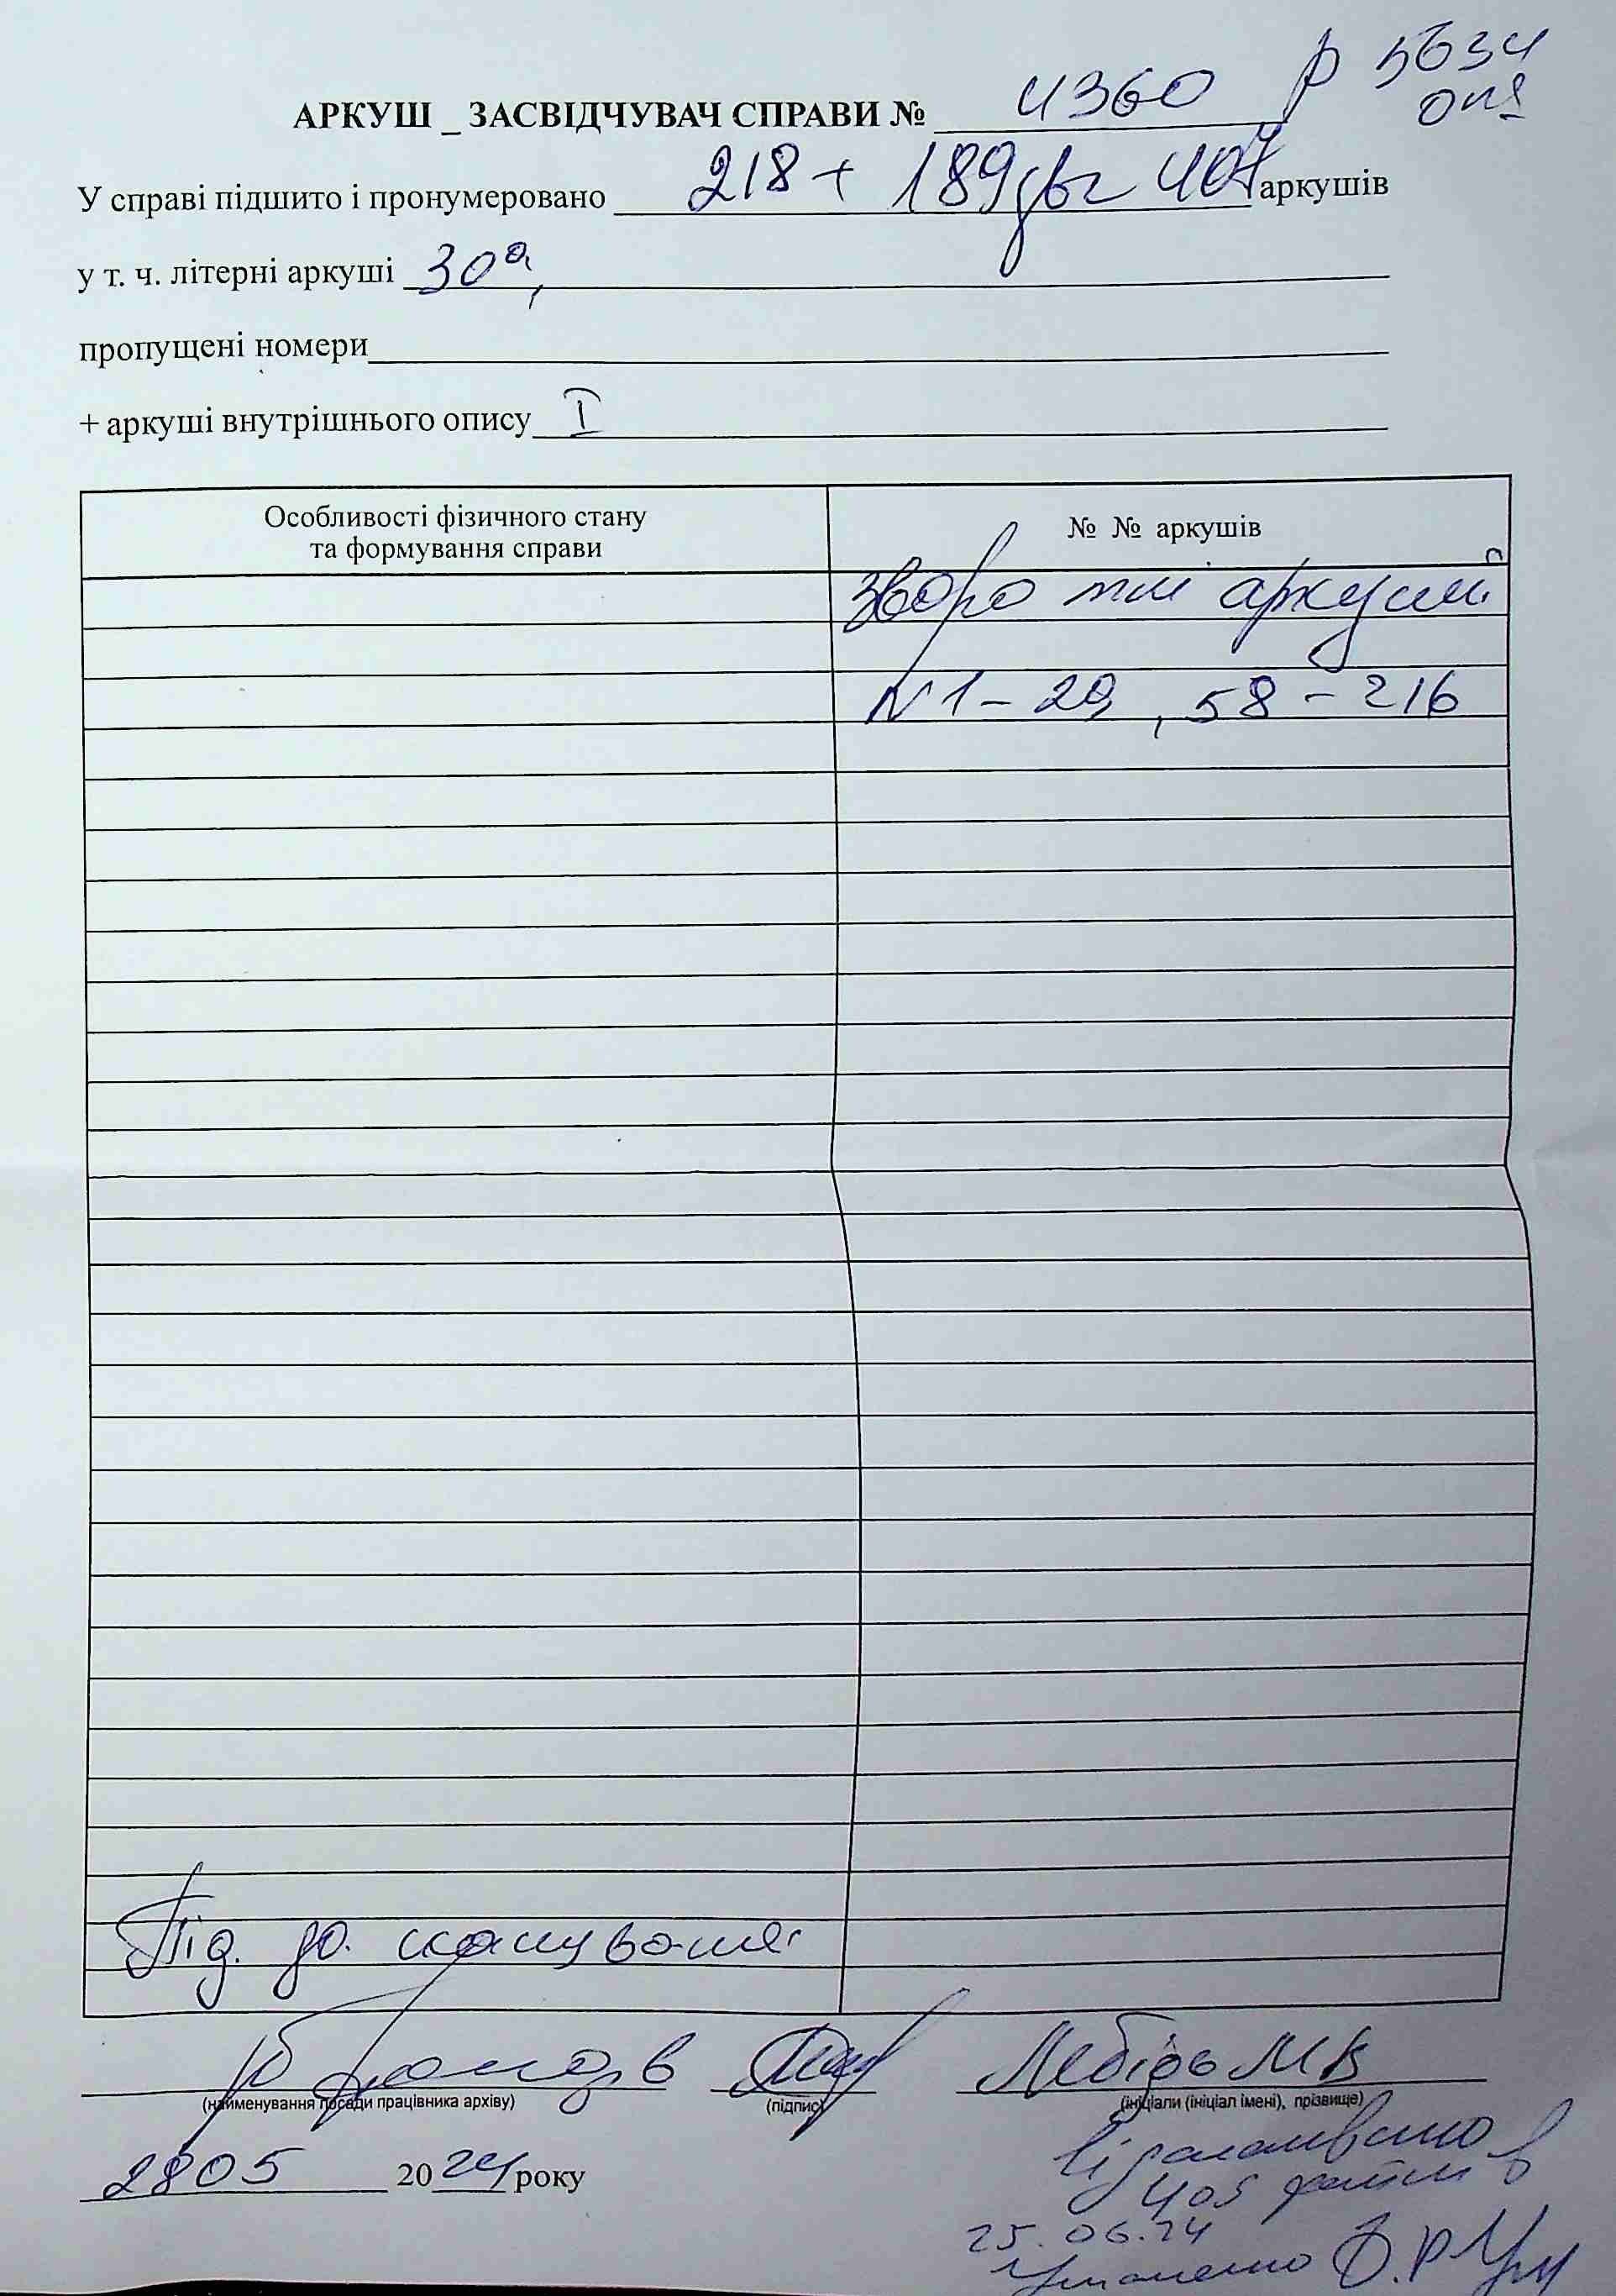 р 5634
оп 1
АРКУШ _ ЗАСВІДЧУВАЧ СПРАВИ № 4360
У справі підшито і пронумеровано 218 + 189 зв 407 аркушів
у т. ч. літерні аркуші 30а,
пропущені номери
+ аркуші внутрішнього опису I
Особливості фізичного стану
та формування справи
№ № аркушів
зворотні аркуші
N 1 - 29, 58 - 216
Під. до сканування
(найменування посади працівника архіву)
(підпис)
Лебідь М В
(ініціали (ініціал імені), прізвище)
2805 2024 року
Відскановано
405 файлів
25.06.24